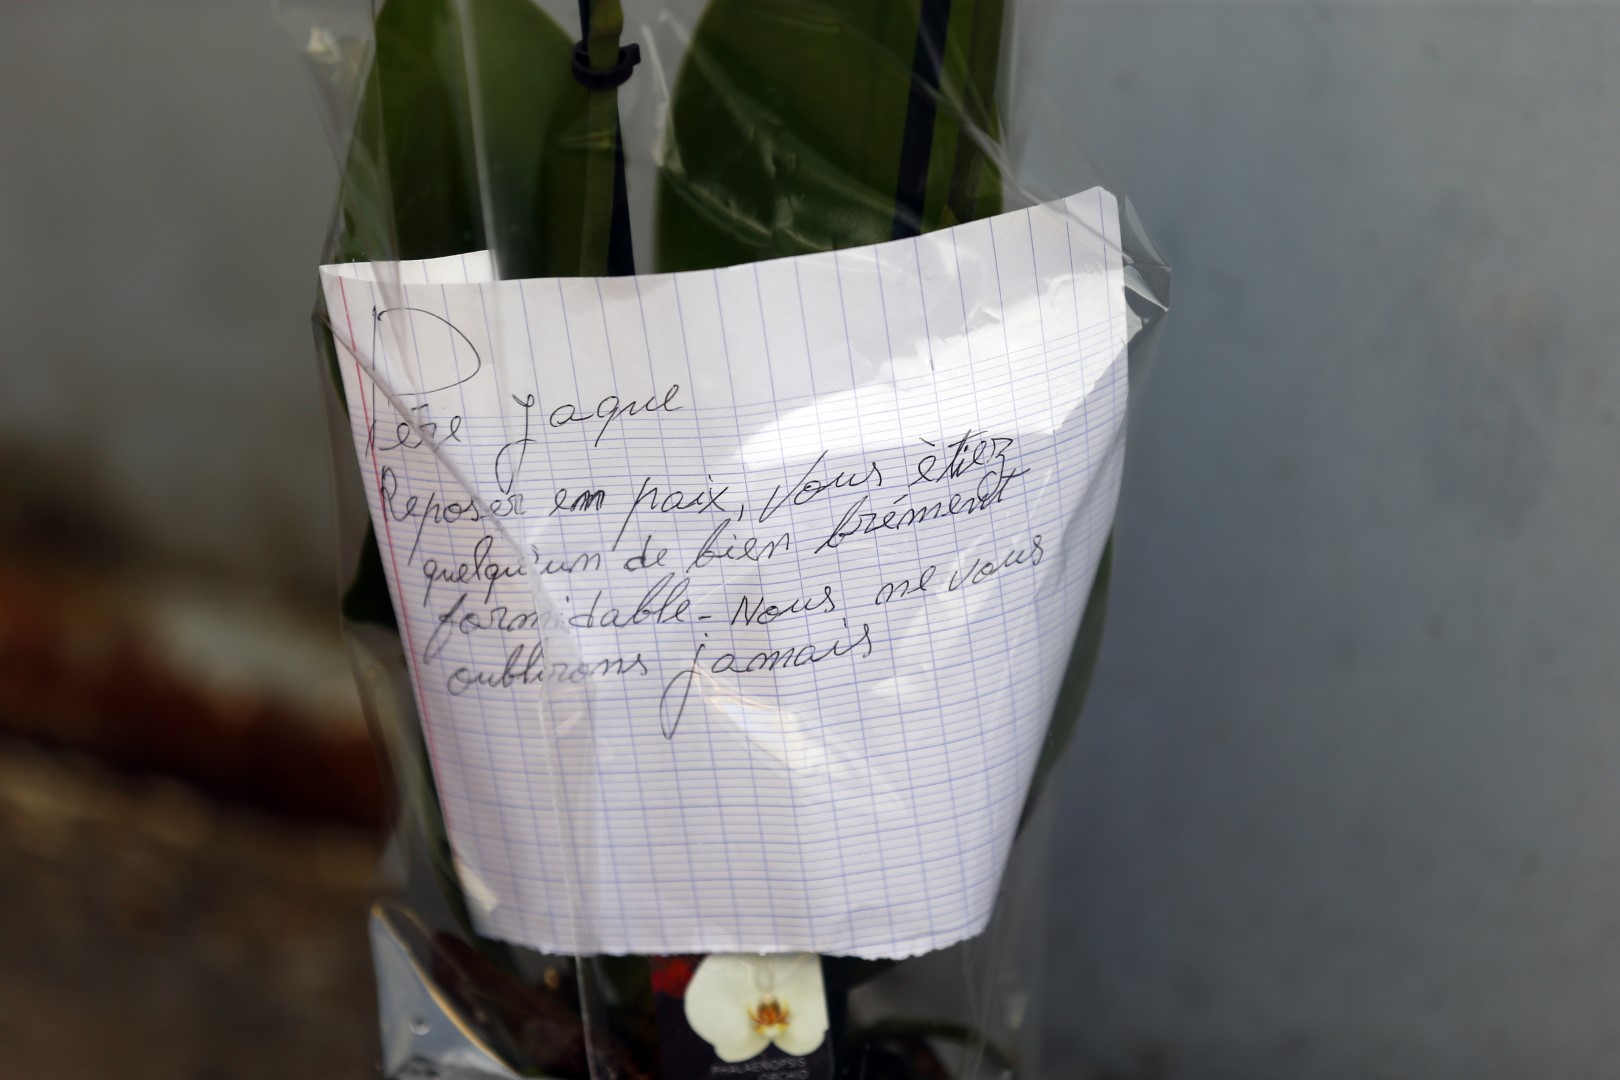 Père Jaque
Reposer em paix, Vous ètiez
quelqu'un de bien brément
formidable - Nous ne vous
oublirons jamais
PHALAENOPSIS
ORCHID